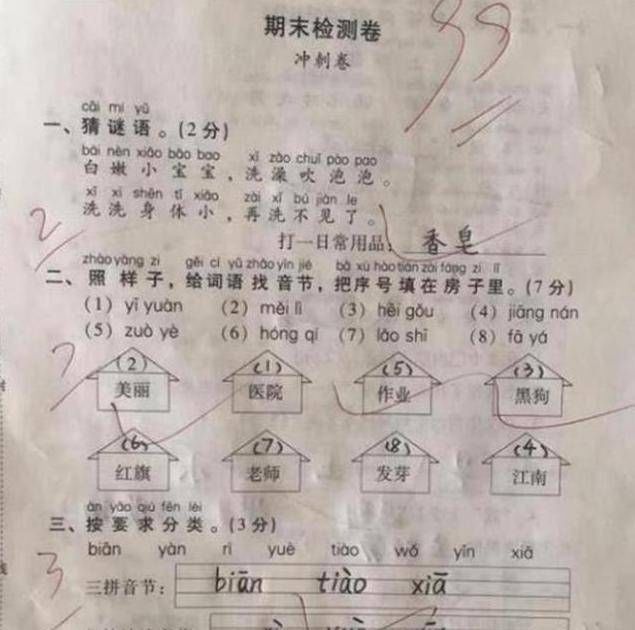 期末检测卷
冲刺卷
99
cāi mí yǔ
一、猜谜语。(2分)
bái nèn xiǎo bǎo bao xǐ zǎo chuī pào pao
白嫩小宝宝,洗澡吹泡泡。
xǐ xi shēn tǐ xiǎo zài xǐ bú jiàn le
洗洗身体小,再洗不见了。
2
打一日常用品: 香皂
zhào yàng zi gěi cí yǔ zhǎo yīn jié bǎ xù hào tián zài fáng zi lǐ
二、照样子,给词语找音节,把序号填在房子里。(7分)
(1) yī yuàn (2) měi lì (3) hēi gǒu (4) jiāng nán
(5) zuò yè (6) hóng qí (7) lǎo shī (8) fā yá
7
(2) (1) (5) (3)
美丽 医院 作业 黑狗
(6) (7) (8) (4)
红旗 老师 发芽 江南
àn yāo qiú fēn lèi
三、按要求分类。(3分)
biān yàn rì yuè tiào wǒ yīn xiā
3
三拼音节: biān tiào xiā